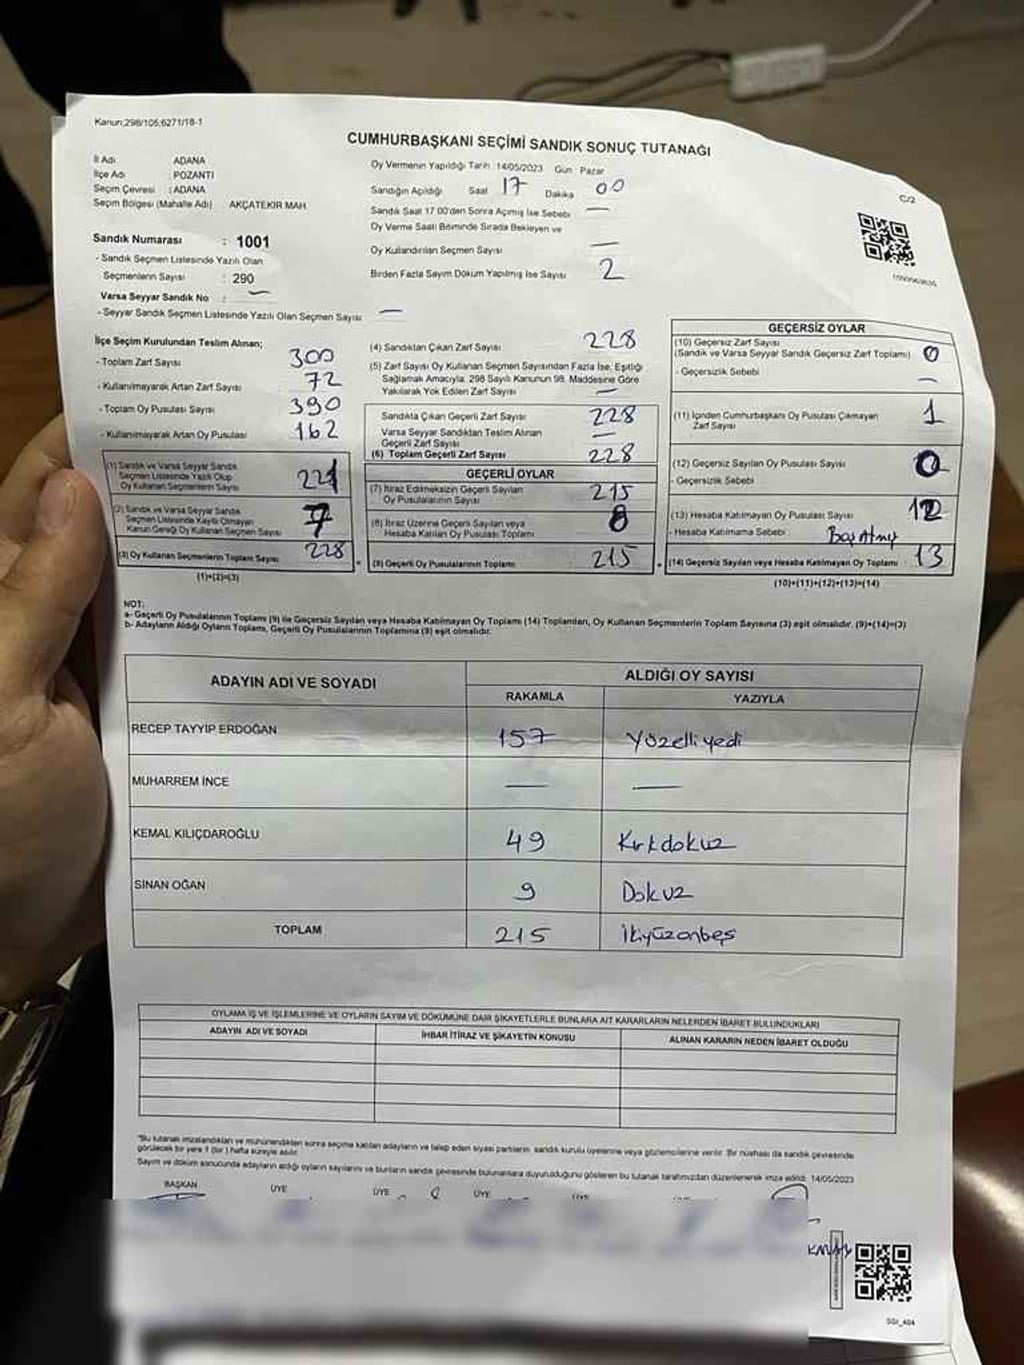 Kanun;298/105;6271/18-1
CUMHURBAŞKANI SEÇİMİ SANDIK SONUÇ TUTANAĞI
İl Adı ADANA
İlçe Adı POZANTI
Seçim Çevresi : ADANA
Seçim Bölgesi (Mahalle Adı) AKÇATEKİR MAH.
Oy Vermenin Yapıldığı Tarih :14/05/2023 Gün : Pazar
Sandığın Açıldığı Saat 17 Dakika 00
Sandık Saat 17.00'den Sonra Açmış İse Sebebi —
Oy Verme Saati Bitiminde Sırada Bekleyen ve
Oy Kullandırılan Seçmen Sayısı —
Birden Fazla Sayım Döküm Yapılmış İse Sayısı 2
C/2
Sandık Numarası : 1001
- Sandık Seçmen Listesinde Yazılı Olan
Seçmenlerin Sayısı : 290
Varsa Seyyar Sandık No : —
- Seyyar Sandık Seçmen Listesinde Yazılı Olan Seçmen Sayısı —
İlçe Seçim Kurulundan Teslim Alınan;
- Toplam Zarf Sayısı 300
- Kullanılmayarak Artan Zarf Sayısı 72
- Toplam Oy Pusulası Sayısı 390
- Kullanılmayarak Artan Oy Pusulası 162
(1) Sandık ve Varsa Seyyar Sandık
Seçmen Listesinde Yazılı Olup
Oy Kullanan Seçmenlerin Sayısı 221
(2) Sandık ve Varsa Seyyar Sandık
Seçmen Listesinde Kayıtlı Olmayan
Kanun Gereği Oy Kullanan Seçmen Sayısı 7
(3) Oy Kullanan Seçmenlerin Toplam Sayısı 228
(1)+(2)=(3)
(4) Sandıktan Çıkan Zarf Sayısı 228
(5) Zarf Sayısı Oy Kullanan Seçmen Sayısından Fazla İse, Eşitliği
Sağlamak Amacıyla, 298 Sayılı Kanunun 98. Maddesine Göre
Yakılarak Yok Edilen Zarf Sayısı —
Sandıkta Çıkan Geçerli Zarf Sayısı 228
Varsa Seyyar Sandıktan Teslim Alınan
Geçerli Zarf Sayısı —
(6) Toplam Geçerli Zarf Sayısı 228
GEÇERLİ OYLAR
(7) İtiraz Edilmeksizin Geçerli Sayılan
Oy Pusulalarının Sayısı 215
(8) İtiraz Üzerine Geçerli Sayılan veya
Hesaba Katılan Oy Pusulaları Toplamı
(9) Geçerli Oy Pusulalarının Toplamı 215
GEÇERSİZ OYLAR
(10) Geçersiz Zarf Sayısı
(Sandık ve Varsa Seyyar Sandık Geçersiz Zarf Toplamı) 0
- Geçersizlik Sebebi —
(11) İçinden Cumhurbaşkanı Oy Pusulası Çıkmayan
Zarf Sayısı 1
(12) Geçersiz Sayılan Oy Pusulası Sayısı 0
- Geçersizlik Sebebi
(13) Hesaba Katılmayan Oy Pusulası Sayısı 12
- Hesaba Katılmama Sebebi
(14) Geçersiz Sayılan veya Hesaba Katılmayan Oy Toplamı : 13
(10)+(11)+(12)+(13)=(14)
NOT:
a- Geçerli Oy Pusulalarının Toplamı (9) ile Geçersiz Sayılan veya Hesaba Katılmayan Oy Toplamı (14) Toplamları, Oy Kullanan Seçmenlerin Toplam Sayısına (3) eşit olmalıdır. (9)+(14)=(3)
b- Adayların Aldığı Oyların Toplamı, Geçerli Oy Pusulalarının Toplamına (9) eşit olmalıdır.
ADAYIN ADI VE SOYADI ALDIĞI OY SAYISI
RAKAMLA YAZIYLA
RECEP TAYYİP ERDOĞAN 157 Yüzelliyedi
MUHARREM İNCE — —
KEMAL KILIÇDAROĞLU 49 Kırkdokuz
SİNAN OĞAN 9 Dokuz
TOPLAM 215 ikiyüzonbeş
OYLAMA İŞ VE İŞLEMLERİNE VE OYLARIN SAYIM VE DÖKÜMÜNE DAİR ŞİKAYETLERLE BUNLARA AİT KARARLARIN NELERDEN İBARET BULUNDUKLARI
ADAYIN ADI VE SOYADI İHBAR İTİRAZ VE ŞİKAYETİN KONUSU ALINAN KARARIN NEDEN İBARET OLDUĞU
"Bu tutanak imzalandıktan ve mühürlendikten sonra seçime katılan adayların ve talep eden siyasi partilerin sandık kurulu üyelerine veya gözlemcilerine verilir. Bir nüshası da sandık çevresinde
görülecek bir yere 1 (bir) hafta süreyle asılır.
Sayım ve döküm sonucunda adayların aldığı oyların sayılarını ve bunların sandık çevresinde bulunanlara duyurulduğunu gösteren bu tutanak tarafımızdan düzenlenerek imza edildi. 14/05/2023
BAŞKAN ÜYE ÜYE ÜYE
SGI_404